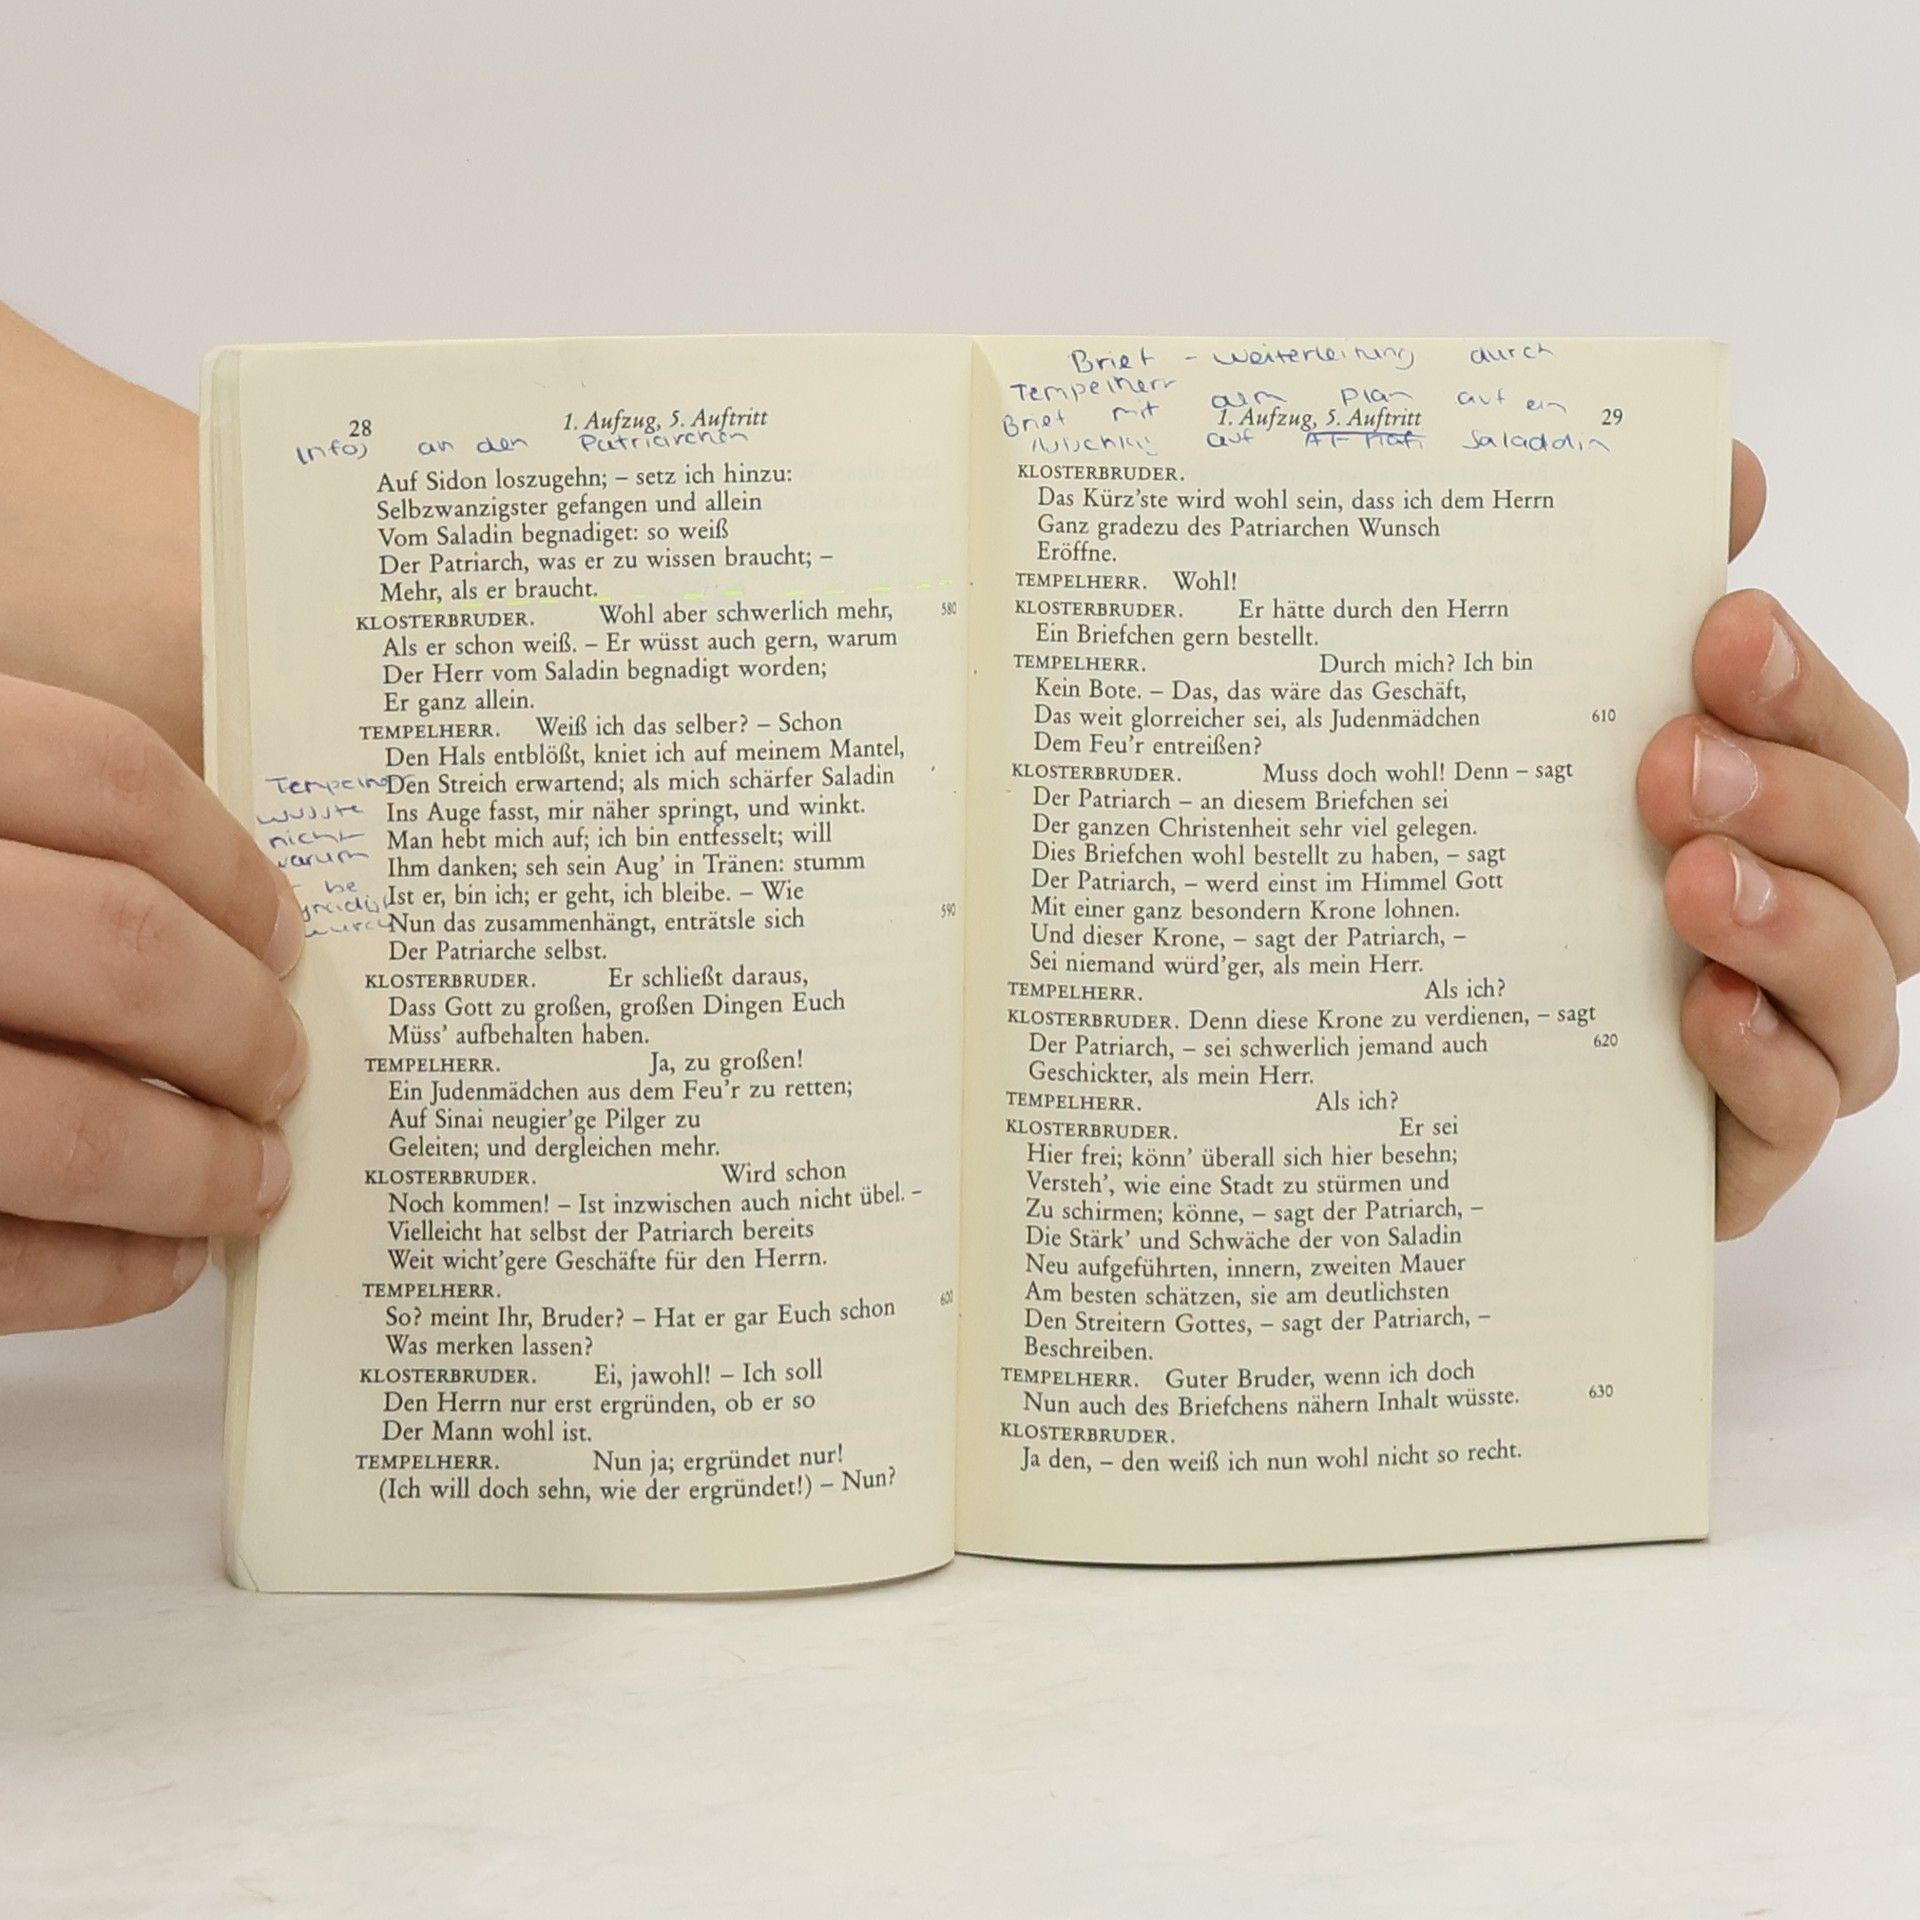 28
1. Aufzug, 5. Auftritt
Infos an den Patriarchen
Auf Sidon loszugehn; – setz ich hinzu:
Selbzwanzigster gefangen und allein
Vom Saladin begnadiget: so weiß
Der Patriarch, was er zu wissen braucht; –
Mehr, als er braucht.
KLOSTERBRUDER. Wohl aber schwerlich mehr, 580
Als er schon weiß. – Er wüsst auch gern, warum
Der Herr vom Saladin begnadigt worden;
Er ganz allein.
TEMPELHERR. Weiß ich das selber? – Schon
Den Hals entblößt, kniet ich auf meinem Mantel,
Den Streich erwartend; als mich schärfer Saladin
Ins Auge fasst, mir näher springt, und winkt.
Man hebt mich auf; ich bin entfesselt; will
Ihm danken; seh sein Aug' in Tränen: stumm
Ist er, bin ich; er geht, ich bleibe. – Wie
Nun das zusammenhängt, enträtsle sich 590
Der Patriarche selbst.
KLOSTERBRUDER. Er schließt daraus,
Dass Gott zu großen, großen Dingen Euch
Müss' aufbehalten haben.
TEMPELHERR. Ja, zu großen!
Ein Judenmädchen aus dem Feu'r zu retten;
Auf Sinai neugier'ge Pilger zu
Geleiten; und dergleichen mehr.
KLOSTERBRUDER. Wird schon
Noch kommen! – Ist inzwischen auch nicht übel. –
Vielleicht hat selbst der Patriarch bereits
Weit wicht'gere Geschäfte für den Herrn.
TEMPELHERR.
So? meint Ihr, Bruder? – Hat er gar Euch schon 600
Was merken lassen?
KLOSTERBRUDER. Ei, jawohl! – Ich soll
Den Herrn nur erst ergründen, ob er so
Der Mann wohl ist.
TEMPELHERR. Nun ja; ergründet nur!
(Ich will doch sehn, wie der ergründet!) – Nun?
wusste
nicht
warum
Brief - Weiterleitung durch
Tempelherr
Brief mit dem Plan auf ein
auf Saladdin
1. Aufzug, 5. Auftritt
29
KLOSTERBRUDER.
Das Kürz'ste wird wohl sein, dass ich dem Herrn
Ganz gradezu des Patriarchen Wunsch
Eröffne.
TEMPELHERR. Wohl!
KLOSTERBRUDER. Er hätte durch den Herrn
Ein Briefchen gern bestellt.
TEMPELHERR. Durch mich? Ich bin
Kein Bote. – Das, das wäre das Geschäft,
Das weit glorreicher sei, als Judenmädchen 610
Dem Feu'r entreißen?
KLOSTERBRUDER. Muss doch wohl! Denn – sagt
Der Patriarch – an diesem Briefchen sei
Der ganzen Christenheit sehr viel gelegen.
Dies Briefchen wohl bestellt zu haben, – sagt
Der Patriarch, – werd einst im Himmel Gott
Mit einer ganz besondern Krone lohnen.
Und dieser Krone, – sagt der Patriarch, –
Sei niemand würd'ger, als mein Herr.
TEMPELHERR. Als ich?
KLOSTERBRUDER. Denn diese Krone zu verdienen, – sagt
Der Patriarch, – sei schwerlich jemand auch 620
Geschickter, als mein Herr.
TEMPELHERR. Als ich?
KLOSTERBRUDER. Er sei
Hier frei; könn' überall sich hier besehn;
Versteh', wie eine Stadt zu stürmen und
Zu schirmen; könne, – sagt der Patriarch, –
Die Stärk' und Schwäche der von Saladin
Neu aufgeführten, innern, zweiten Mauer
Am besten schätzen, sie am deutlichsten
Den Streitern Gottes, – sagt der Patriarch, –
Beschreiben.
TEMPELHERR. Guter Bruder, wenn ich doch
Nun auch des Briefchens nähern Inhalt wüsste. 630
KLOSTERBRUDER.
Ja den, – den weiß ich nun wohl nicht so recht.